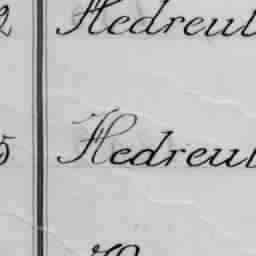 2 Hedreul
5 Hedreul